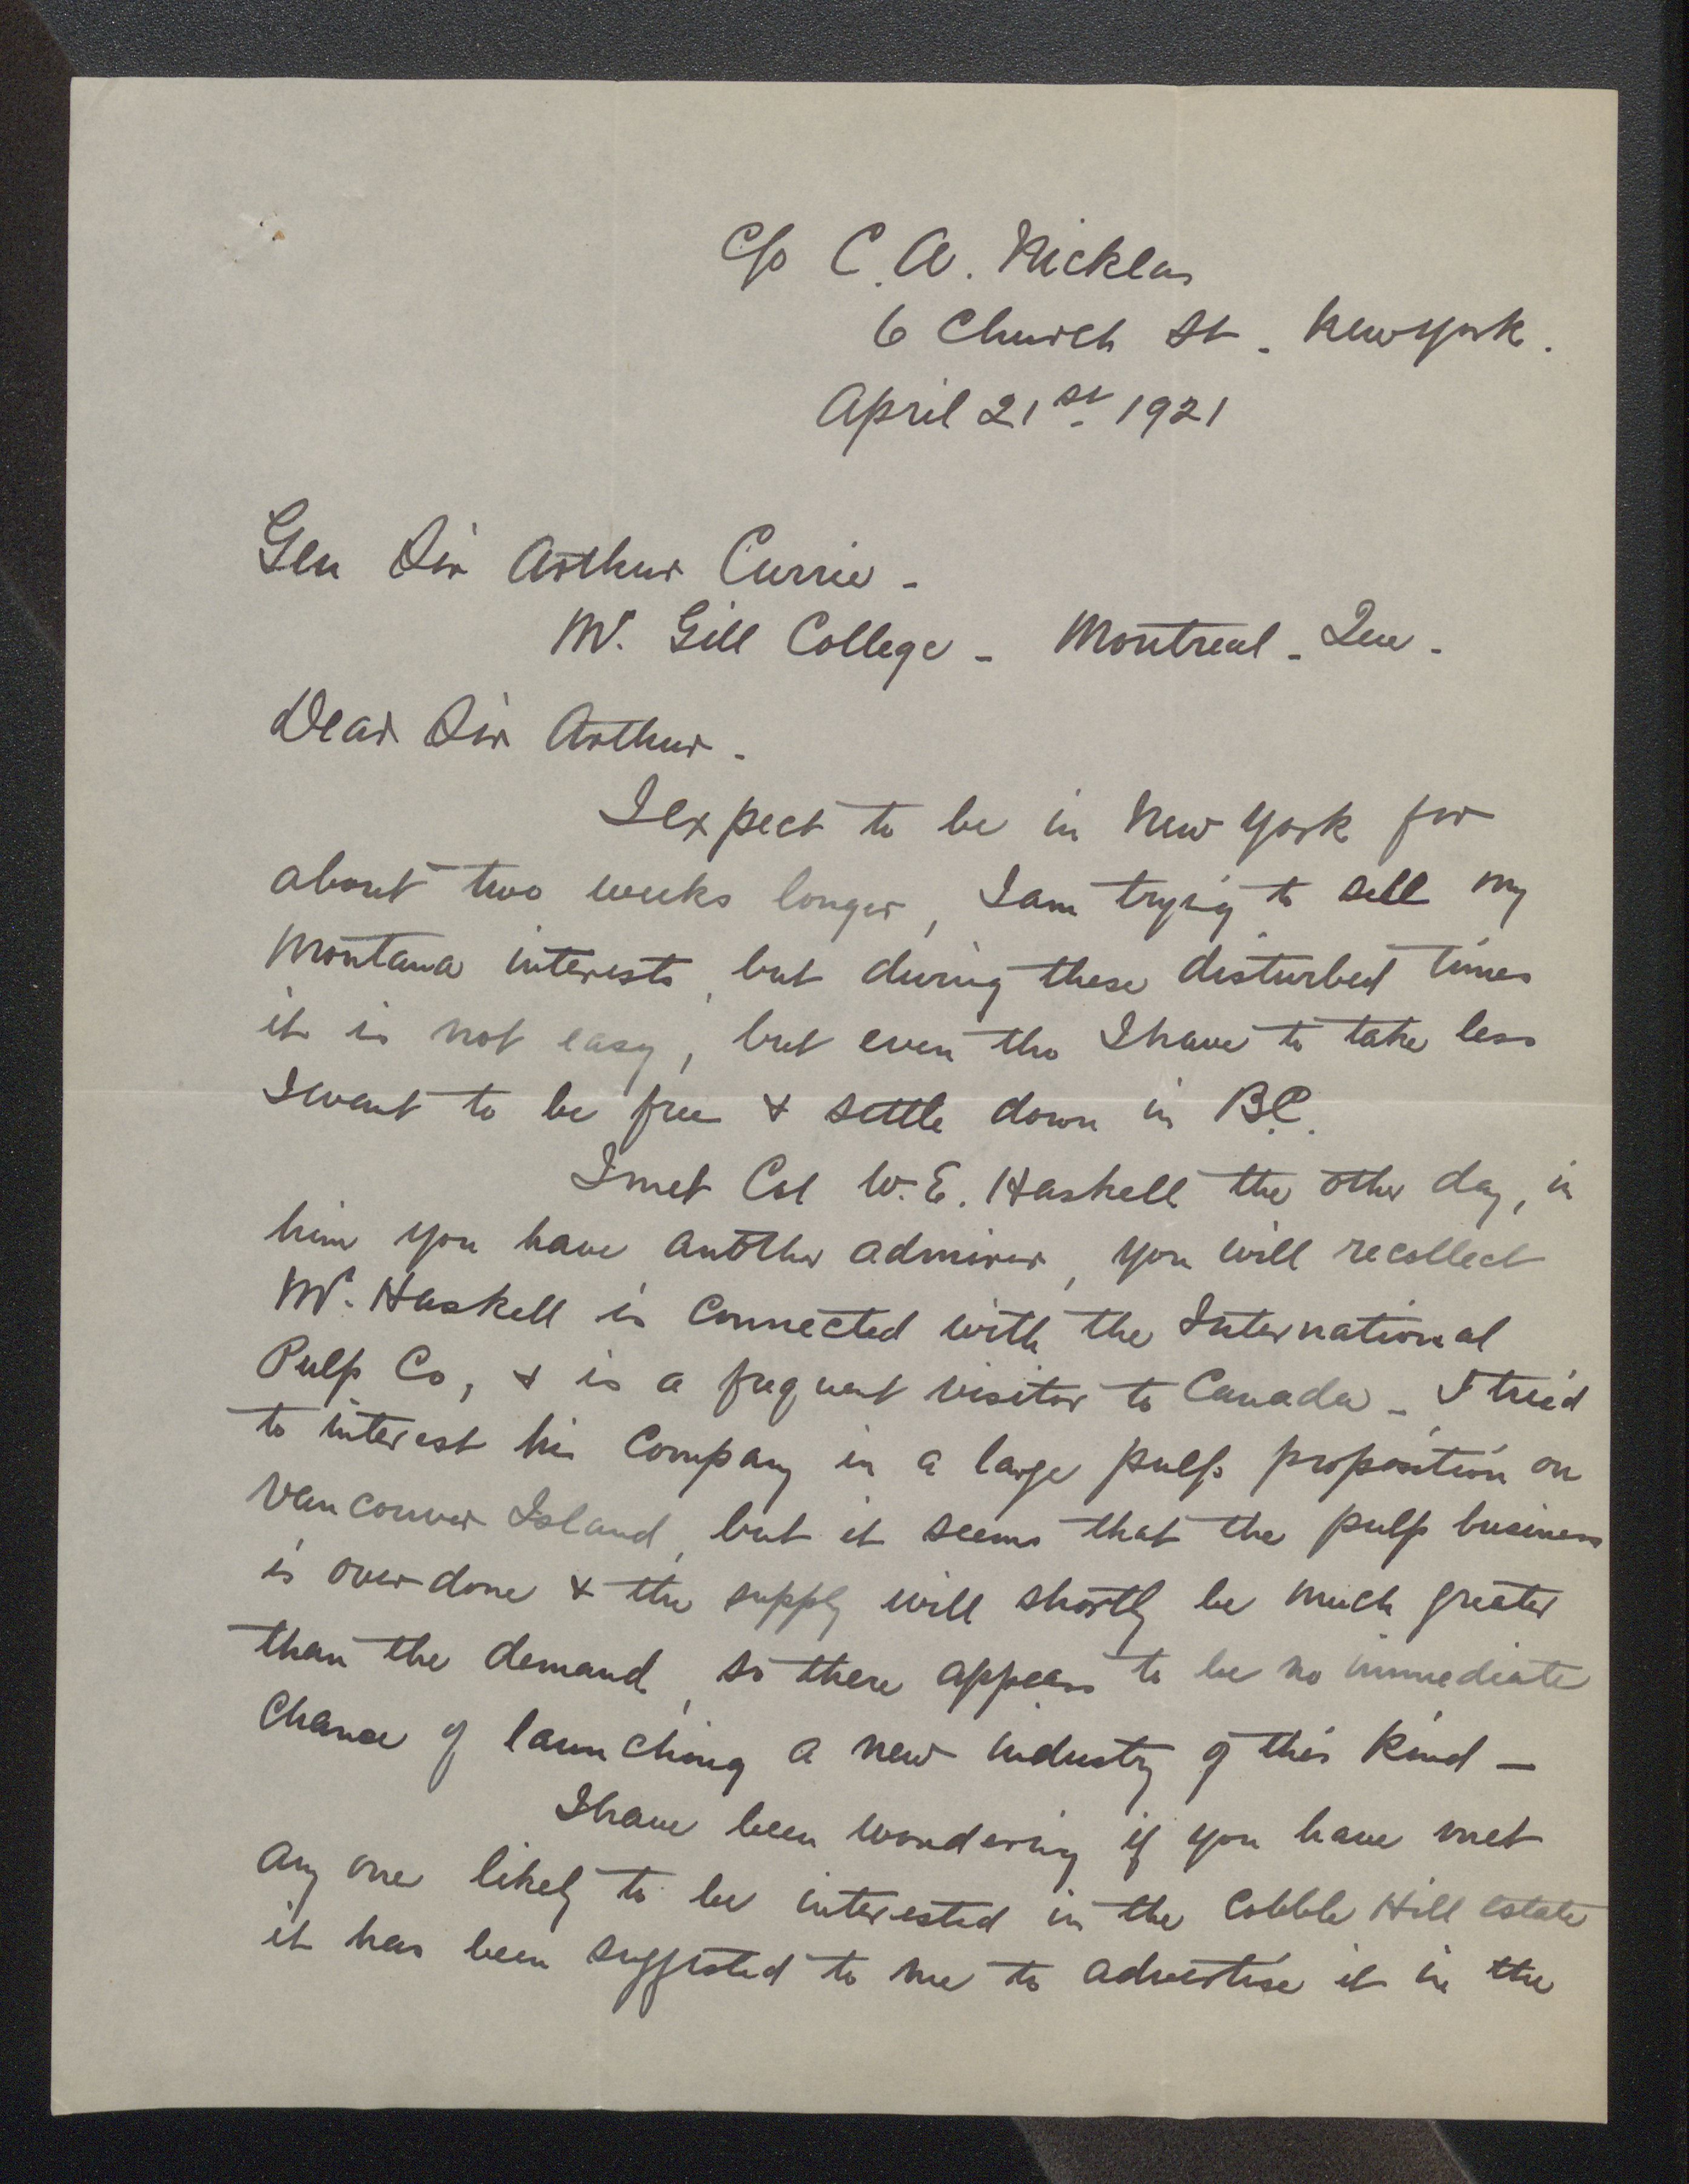 c/o C. A. Nicklas
6 Church St. New York.
April 21st 1921
Gen Sir Arthur Currie -
Mc. Gill College - Montreal - Que -
Dear Sir Arthur -
I expect to be in New York for
about two weeks longer, I am trying to sell my
Montana interests, but during these disturbed times
it is not easy, but even tho I have to take less
I want to be free & settle down in B.C.
I met Col W. E. Haskell the other day, in
him you have another admirer, you will recollect
Mr. Haskell is connected with the International
Pulp Co, & is a frequent visitor to Canada - I tried
to interest his Company in a large pulp proposition on
Vancouver Island, but it seems that the pulp business
is overdone & the supply will shortly be much greater
than the demand, so there appears to be no immediate
chance of launching a new industry of this kind -
I have been wondering if you have met
any one likely to be interested in the Cobble Hill estate
it has been suggested to me to advertise it in the